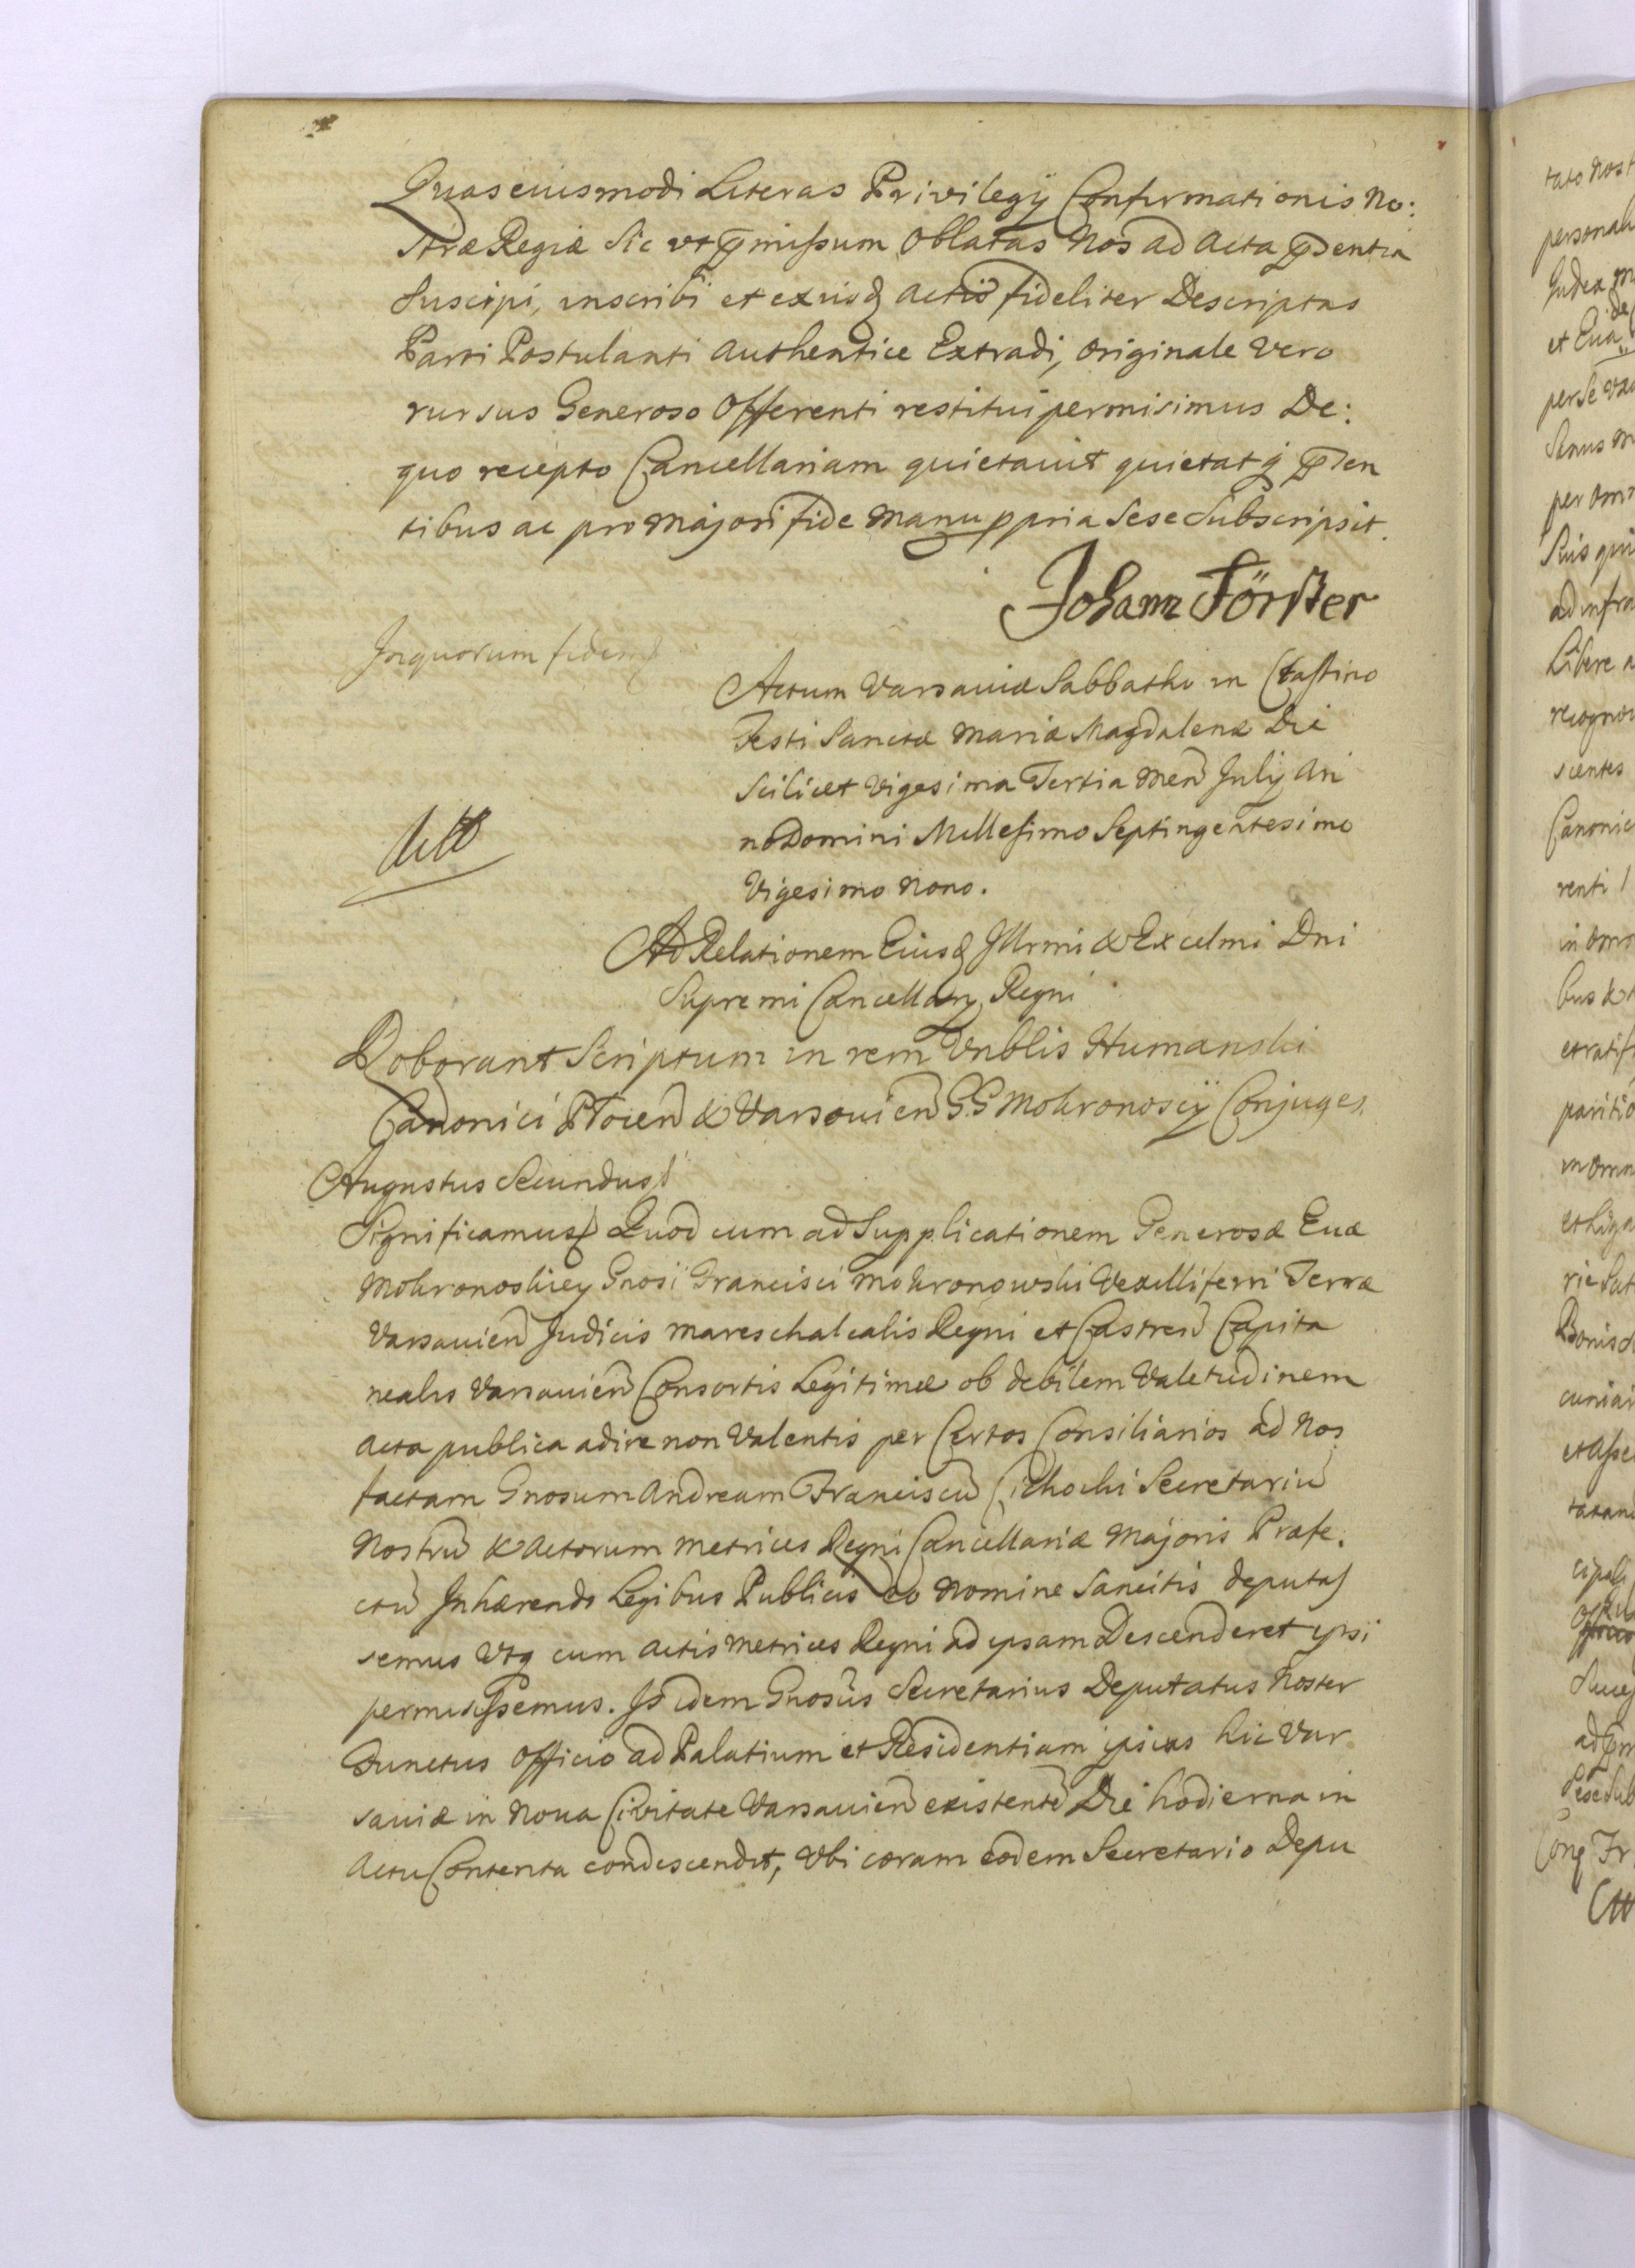 Quas eiusmodi Literas Privilegÿ Confirmationis No:
stræ Regiæ sic vt p̄missum Oblatas Nos ad Acta p̄sentia
Suscipi, inscribi et ex iisđ Actis fideliter Descriptas
Parti Postulanti Authentice Extradi, Originale Vero
rursus Generoso Offerenti restitui permisimus De:
quo recepto Cancellariam quietavit quietatq̨ p̄sen
tibus ac pro Majori fide Manu ppria Sese Subscripsit.
Johann Förster
In quorum fidem
Actum Varsaviæ Sabbatho in Crastino
Festi Sanctæ Mariæ Magdalenæ Die
Scilicet Vigesima Tertia Men̄ July An
no Domini Millesimo Septingentesimo
Vigesimo Nono.
Ad Relationem Eiusđ Illrmi & Excelmi Dni
Supremi Cancellarÿ Regni
Roborant Scriptum in rem Vnblis Humanski
Canonici & Varsovien̄ G.G Mokronoscÿ Conjuges
Augustus Secundus
Significamus Quod cum ad Supplicationem Generosæ Euæ
Mokronoskiey Gnosi Francisci Mokronowski Vexilliferi Terræ
Varsavien̄ Judicis Mareschalcalis Regni et Castren̄ Capita
nealis Varsavien̄ Consortis Legitimæ ob debilem Valetudinem
Acta publica adire non Valentis per Certos Consiliarios ad Nos
factam Gnosum Andream Franciscū Cichocki Secretariū
Nostrū & Actorum Metrices Regni Cancellariæ Majoris Præfe.
ctū Inhærendo Legibus Publicis eo Nomine Sancitis deputas
semus Vtq̨ cum Actis Metrices Regni ad ipsam Descenderet ipsi
permisissemus. Is idem Gnosus Secretarius Deputatus Noster
Functus Officio ad Palatium et Residentiam ipsius hic Var
saviæ in Noua Civitate Varsavien̄ existentē Die hodierna in
Actu Contenta condescendit, Vbi coram eodem Secretario Depu
tato Nost
et Eua
per se
per om
ad infra
Libere
scientes
Canonic
renti
in omn
bus &
in omn
Bonis